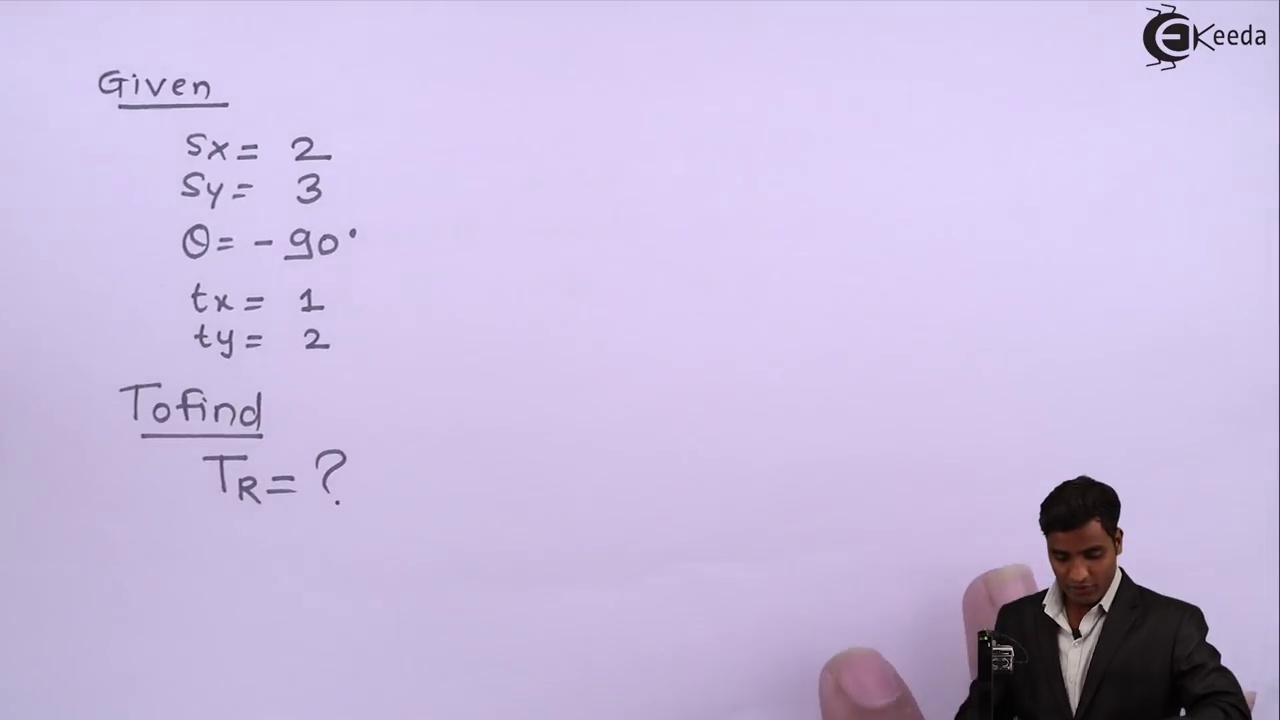 Keeda
Given
Sx = 2
Sy = 3
θ = - 90°
tx = 1
ty = 2
To find
TR = ?